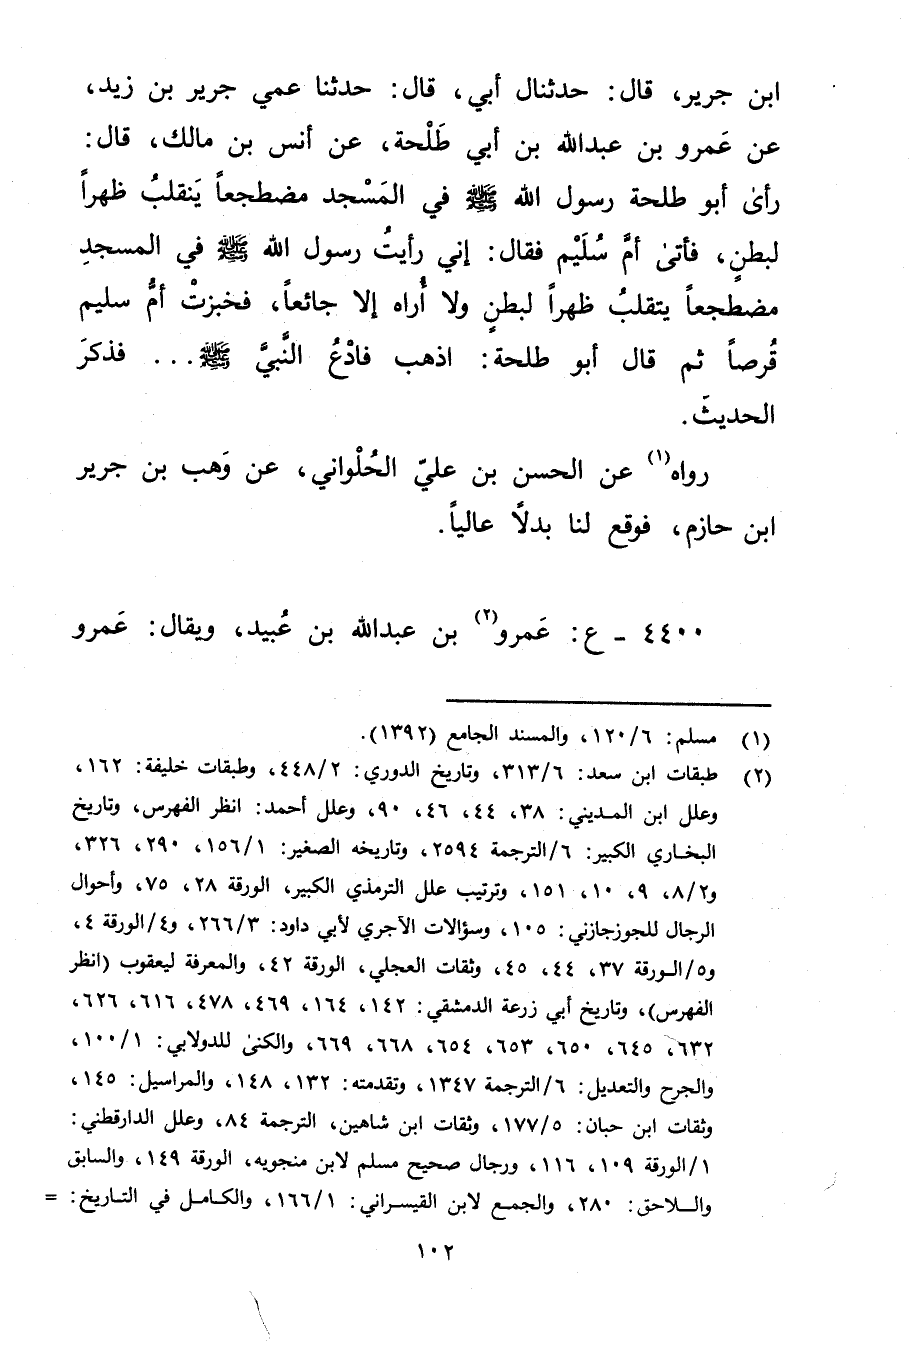 ابن جرير، قال: حدثنال أبي، قال: حدثنا عمي جرير بن زيد،
عن عَمرو بن عبدالله بن أبي طَلْحة، عن أنس بن مالك، قال:
رأىٰ أبو طلحة رسول الله ﷺ في المَسْجد مضطجعاً يَنقلبُ ظهراً
لبطنٍ، فأتىٰ أمَّ سُلَيْم فقال: إني رأيتُ رسول الله ﷺ في المسجدِ
مضطجعاً يتقلبُ ظهراً لبطنٍ ولا أُراه إلا جائعاً، فخبزتْ أمُّ سليم
قُرصاً ثم قال أبو طلحة: اذهب فادْعُ النَّبيَّ ﷺ... فذكرَ
الحديثَ.
رواه(١) عن الحسن بن عليّ الحُلْواني، عن وَهب بن جرير
ابن حازم، فوقع لنا بدلًا عالياً.
٤٤٠٠ ـ ع: عَمرو(٢) بن عبدالله بن عُبيد، ويقال: عَمرو
(١) مسلم: ١٢٠/٦، والمسند الجامع (١٣٩٢).
(٢) طبقات ابن سعد: ٣١٣/٦، وتاريخ الدوري: ٤٤٨/٢، وطبقات خليفة: ١٦٢،
وعلل ابن المديني: ٣٨، ٤٤، ٤٦، ٩٠، وعلل أحمد: انظر الفهرس، وتاريخ
البخاري الكبير: ٦/الترجمة ٢٥٩٤، وتاريخه الصغير: ١٥٦/١، ٢٩٠، ٣٢٦،
و٨/٢، ٩، ١٠، ١٥١، وترتيب علل الترمذي الكبير، الورقة ٢٨، ٧٥، وأحوال
الرجال للجوزجازني: ١٠٥، وسؤالات الآجري لأبي داود: ٢٦٦/٣، و٤/الورقة ٤،
و٥/الورقة ٣٧، ٤٤، ٤٥، وثقات العجلي، الورقة ٤٢، والمعرفة ليعقوب (انظر
الفهرس)، وتاريخ أبي زرعة الدمشقي: ١٤٢، ١٦٤، ٤٦٩، ٤٧٨، ٦١٦، ٦٢٦،
٦٣٢، ٦٤٥، ٦٥٠، ٦٥٣، ٦٥٤، ٦٦٨، ٦٦٩، والكنىٰ للدولابي: ١٠٠/١،
والجرح والتعديل: ٦/الترجمة ١٣٤٧، وتقدمته: ١٣٢، ١٤٨، والمراسيل: ١٤٥،
وثقات ابن حبان: ١٧٧/٥، وثقات ابن شاهين، الترجمة ٨٤، وعلل الدارقطني:
١/الورقة ١٠٩، ١١٦، ورجال صحيح مسلم لابن منجويه، الورقة ١٤٩، والسابق
واللاحق: ٢٨٠، والجمع لابن القيسراني: ١٦٦/١، والكامل في التاريخ: =
١٠٢